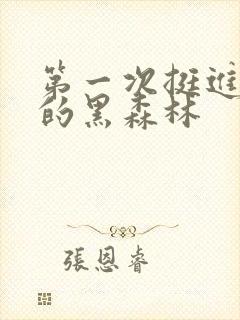 第一次挺进
的黑森林
張恩睿